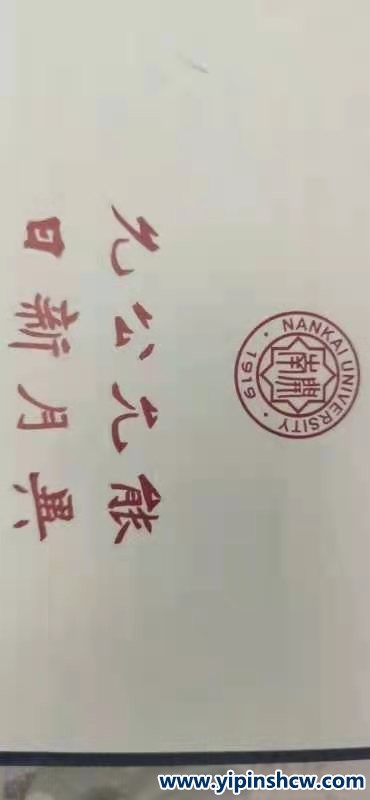 NANKAI UNIVERSITY
1919
南開
允公允能
日新月異
www.yipinshcw.com